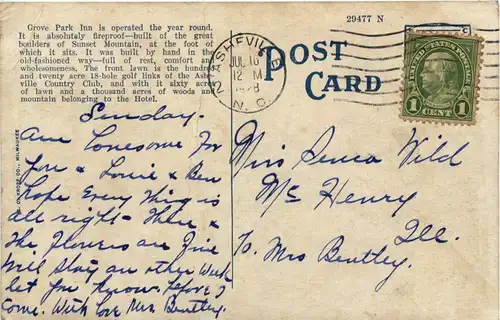 Grove Park Inn is operated the year round.
It is absolutely fireproof—built of the great
boulders of Sunset Mountain, at the foot of
which it sits. It was built by hand in the
old-fashioned way—full of rest, comfort and
wholesomeness. The front lawn is the hundred
and twenty acre 18-hole golf links of the Ashe-
ville Country Club, and with it sixty acres
of lawn and a thousand acres of woods and
mountain belonging to the Hotel.
29477 N
POST
CARD
ASHEVILLE
JUL 16
12 M
1928
N. C.
UNITED STATES POSTAGE
1 1
CENT
Sunday.
Am Lonesome for
You & Louie & Ben
hope Every thing is
all right - There &
the flowers are fine
Will stay an other week
let you know before I
Come. With Love Mrs Bentley.
Miss Wild
Mc Henry
Ill.
To. Mrs Bentley
CO., MILWAUKEE